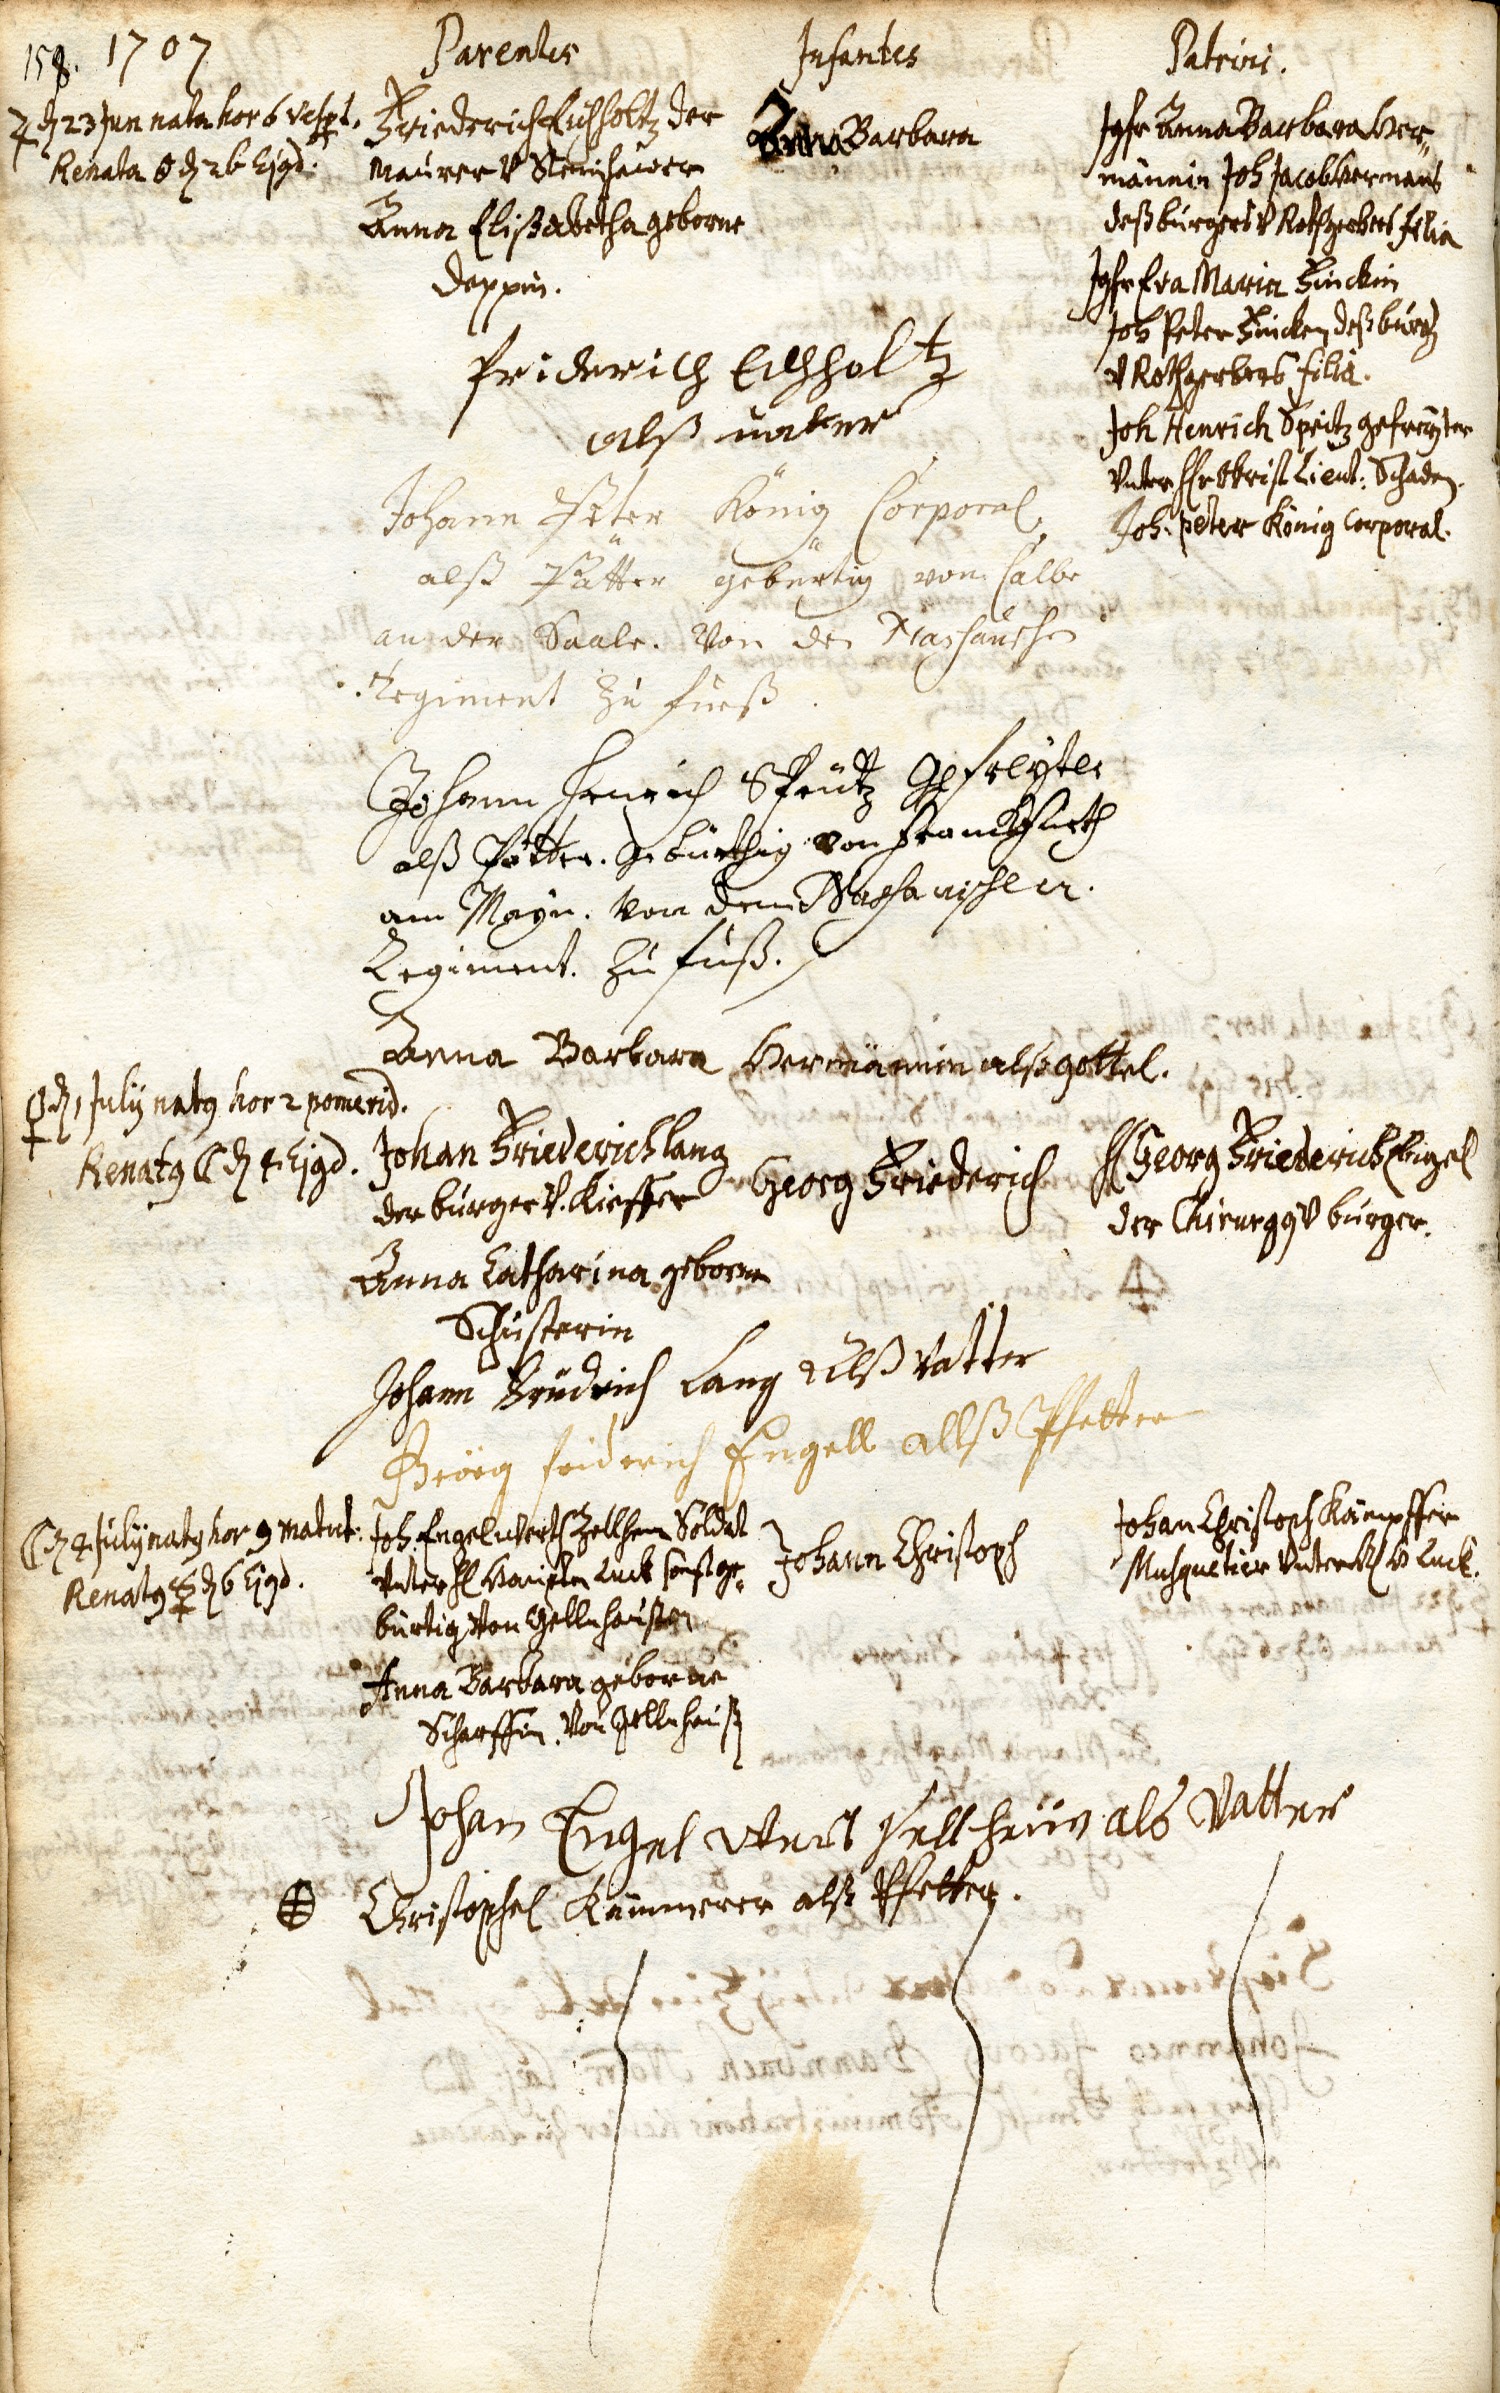 158. 1707
Parentes
Infantes
Patrini.
♃ d 23 Jun nata hor 6 vesp.
Renata d 26 Ejgd.
Friederich Eichholtz der
Maurer v Steinhauer
Anna Elisabetha geborne
Deppin.
Anna Barbara
Jgfr Anna Barbara Her-
männin Joh Jacob Hermans
deß burgers v Rothgerbers filia
Jgfr Eva Maria Finckin
Joh Peter Fincken deß burg
v Rothgerbers filia.
Joh Henrich Spritz gefreyter
Unter Hr Obrist Lieut: Schaden
Joh. Peter König Corporal.
Friderich Eichholtz
alß vatter
Johann Peter König Corporal
alß Pätter gebürtig von Calbe
an der Saale. Von de Nassauische
Regiment zu fueß.
Johann Henrich Spritz Gefreyter
alß Pätter. Gebürthig von Franckfurth
am Mayn. Von dem Nassauischen.
Regiment. zu fuß.
Anna Barbara Hermännin alß gottel.
♀ d 1 July natg hor 2 pomerid.
Renatg ☾ d 4 Ejgd.
Johan Friederich lang
der burger v. Kieffer
Anna Catharina geborne
Schusterin
Georg Friederich
H Georg Friederich Engel
der Chirurgg v burger.
Johann Fridrich Lang alß Vatter
Geörg friderich Engell allß Pfetter
☾ d 4 July natg hor 9 matut:
Renatg d 6 Ejgd.
Joh. Engelwerth Zellhem Soldat
Unter H Luck sonst ge-
bürtig Von Gellnhausen
Anna Barbara geborne
Scharffin. Von Gellnhauß
Johann Christoph
Johan Christoph Kämpffer
Musquetier Unter H Luck.
Johan Engel Wert als Vatter
Christophel Kämmerer alß Pfetter.